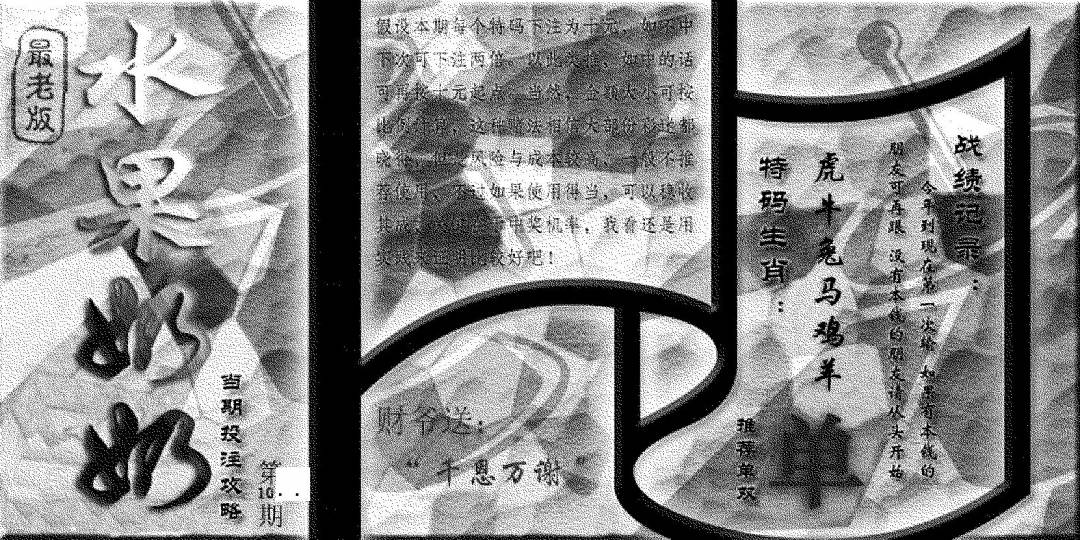 最老版
水果奶奶
当期投注攻略
第
10..
期
假设本期每个特码下注为十元，如不中
下次可下注两倍。以此类推，如中的话
可再按十元起点，当然，金额大小可按
这种赌法相信大部份彩迷都
晓得，但是风险与成本较高，一般不推
荐使用，不过如果使用得当，可以稳收
中奖机率，我看还是用
比较好吧！
财爷送：
“千恩万谢”
战绩记录：
今年到现在第一次输 如果有本钱的
朋友可再跟 没有本钱的朋友请从头开始
虎牛兔马鸡羊
特码生肖：
单
推荐单双